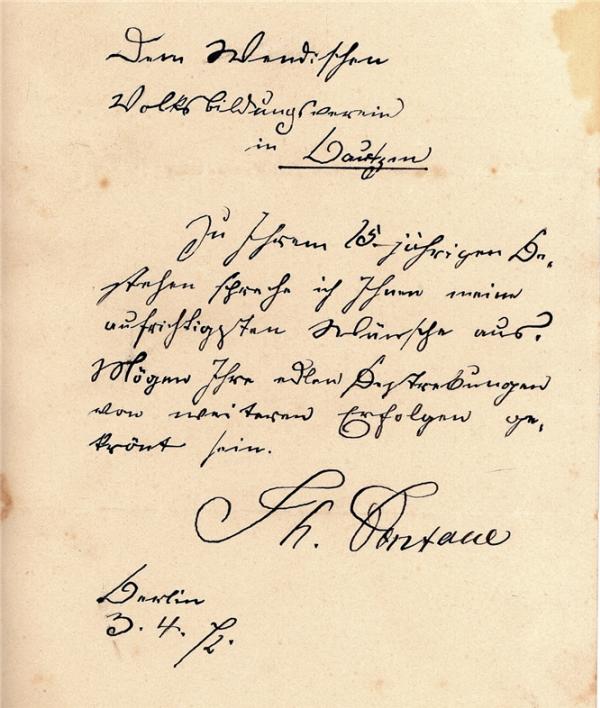 Dem Wendischen
Volksbildungsverein
in Bautzen
Zu Ihrem 25-jährigen Be-
stehen spreche ich Ihnen meine
aufrichtigsten Wünsche aus.
Mögen Ihre edlen Bestrebungen
von weiteren Erfolgen ge-
krönt sein.
Th. Fontane
Berlin
3. 4. 72.